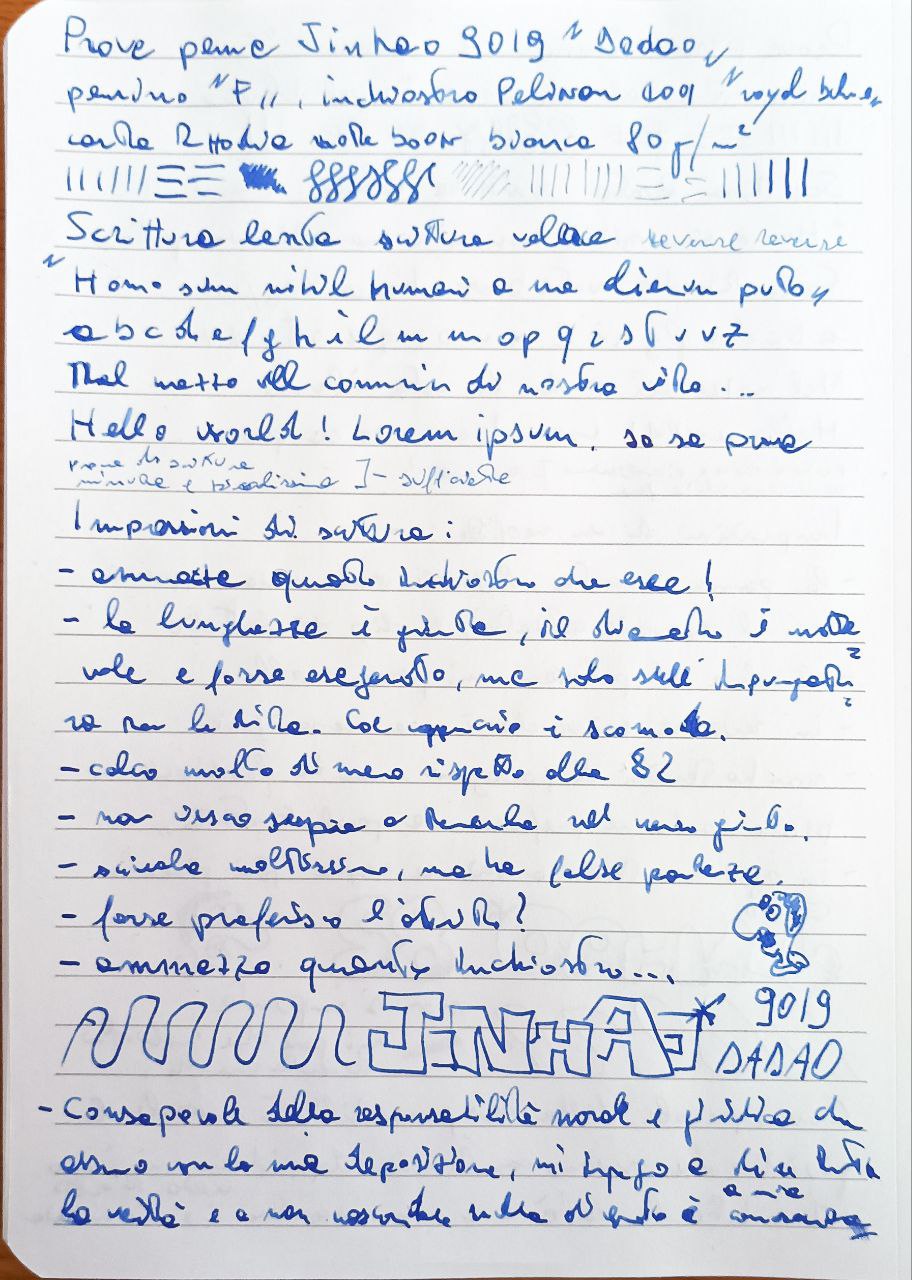 Prove penne Jinhao 9019 "Dadao"
pennino "F", inchiostro Pelikan 4001 "royal blue"
carta Rhodia notebook bianca 80 g/m²
Scrittura lenta scrittura veloce reverse reverse
"Homo sum nihil humani a me alienum puto"
a b c d e f g h i l m n o p q r s t u v z
Nel mezzo del cammin di nostra vita...
Hello world! Lorem ipsum. sa se
prove di scrittura
minuta e piccolissima ]- sufficiente
Impressioni di scrittura:
- ammazza quanto inchiostro che esce!
- la lunghezza è giusta, il diametro è note=
vole e forse esagerato, ma solo sull'impugnatu=
ra non la dita. Col cappuccio è scomoda.
- calco molto di meno rispetto alla 82
- non riesco sempre a tenerla nel verso giusto.
- scivola moltissimo, ma ha false partenze.
- forse preferisco l'
- ammazza quanto inchiostro...
JINHAO 9019
DADAO
- Consapevole della responsabilità morale e giuridica che
assumo con la mia deposizione, mi impegno a dire tutta
la verità e a non nascondere nulla di quanto è a mia
conoscenza